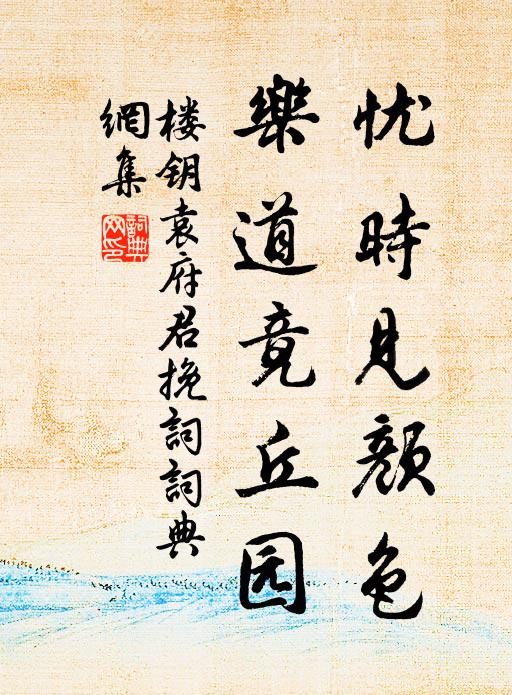 忧時見顔色
樂道竟丘园
楼钥袁府君挽詞詞典
網集
詞典
网印